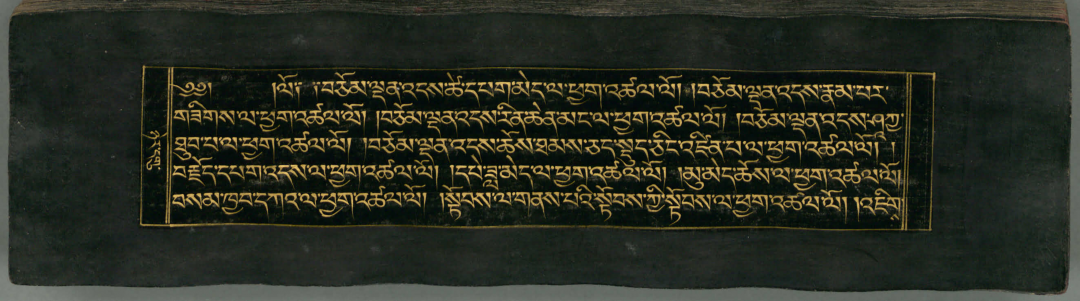 ༄༅། །ལོ། །བཅོམ་ལྡན་འདས་ཚེ་དཔག་མེད་ལ་ཕྱག་འཚལ་ལོ། །བཅོམ་ལྡན་འདས་རྣམ་པར་
གཟིགས་ལ་ཕྱག་འཚལ་ལོ། །བཅོམ་ལྡན་འདས་རིན་ཆེན་མང་ལ་ཕྱག་འཚལ་ལོ། །བཅོམ་ལྡན་འདས་ཤཀྱ་
ཐུབ་པ་ལ་ཕྱག་འཚལ་ལོ། །བཅོམ་ལྡན་འདས་ཆོས་ཐམས་ཅད་སྡུད་ཅིང་འཛིན་པ་ལ་ཕྱག་འཚལ་ལོ། །
བརྗོད་དཔག་འདས་ལ་ཕྱག་འཚལ་ལོ། །དཔེ་ཟླ་མེད་ལ་ཕྱག་འཚལ་ལོ། །མུ་མེད་ཆོས་ལ་ཕྱག་འཚལ་ལོ།
བསམ་ཁྱབ་དཀའ་ལ་ཕྱག་འཚལ་ལོ། །སྟོབས་ལ་གནས་པའི་སྟོབས་ཀྱི་སྟོབས་ལ་ཕྱག་འཚལ་ལོ། །འཇིག་